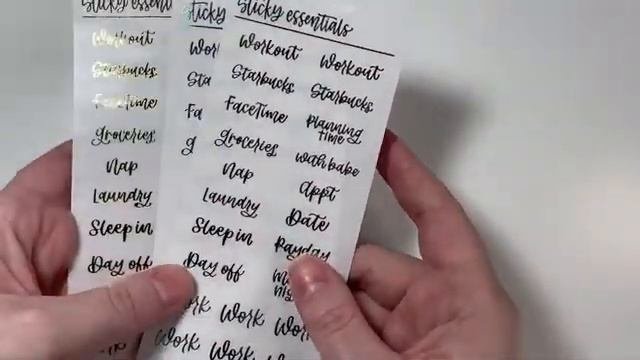 Sticky essenti
Workout
Starbucks
FaceTime
groceries
Nap
Laundry
Sleep in
Day off
Sticky
Wor
Sta
Fa
g
Sticky essentials
Workout Workout
Starbucks Starbucks
FaceTime Planning Time
groceries wahbabe
Nap appt
Laundry Date
Sleep in Payday
Day off
Work Work
Work Work